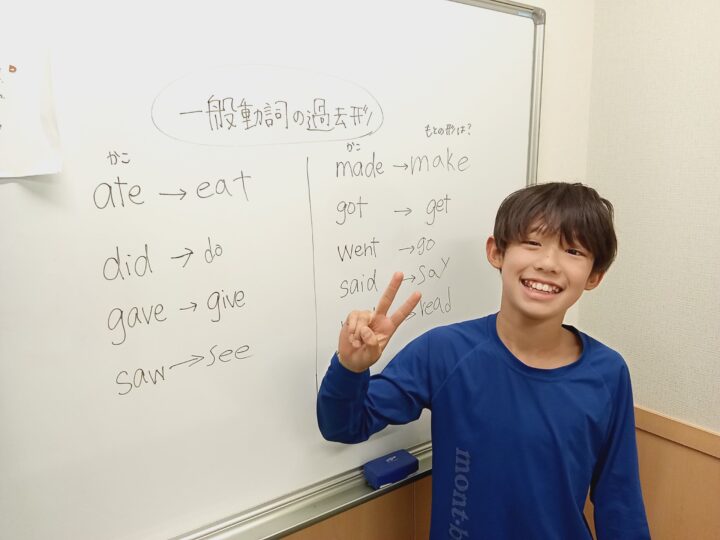 一般動詞の過去形
かこ
ate → eat
did → do
gave → give
saw → see
もとの形は?
かこ
made → make
got → get
went → go
said → say
→ read
mont-b